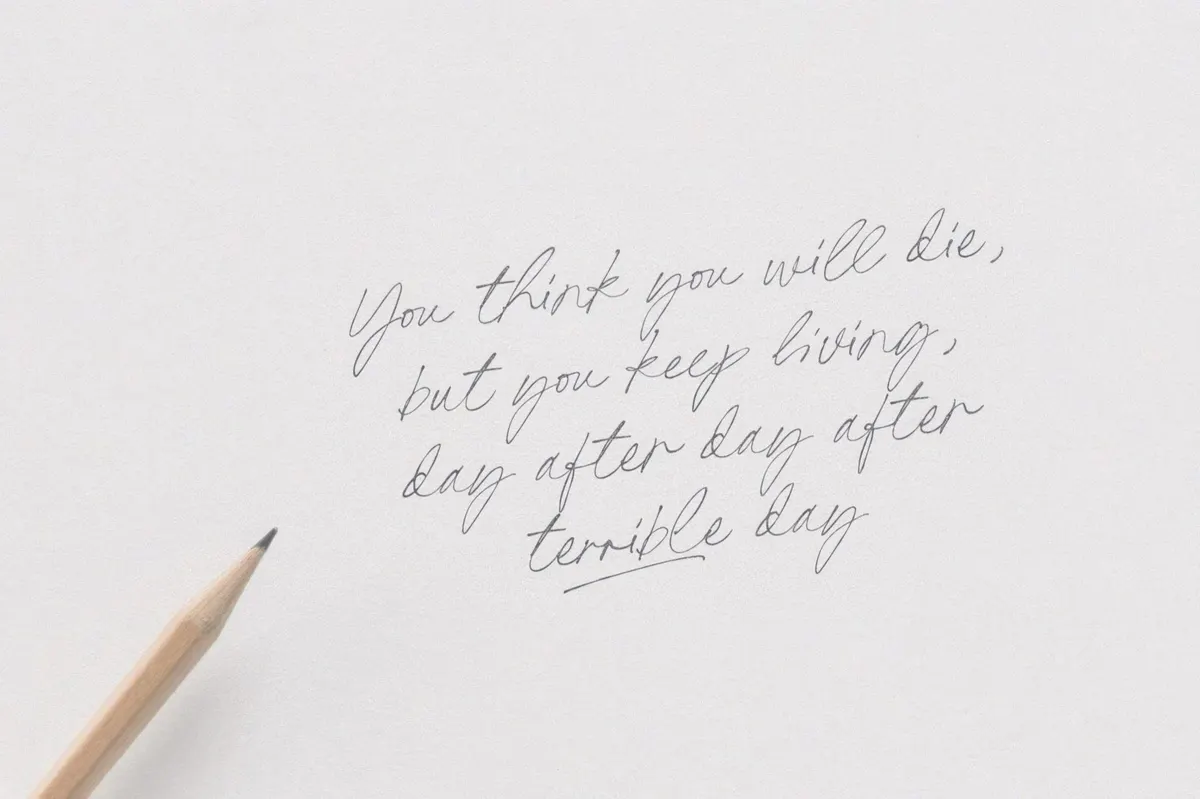 You think you will die,
but you keep living,
day after day after
terrible day